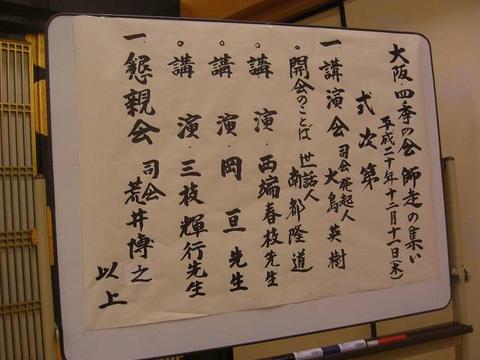 大阪・四季の会 師走の集い
平成二十年十二月十一日(木)
式次第
一 講演会 司会発起人 大島英樹
。開会のことば 世話人 南都隆道
。講演・西端春枝先生
。講演・岡亘先生
。講演・三枝輝行先生
一 懇親会 司会 荒井博之
以上